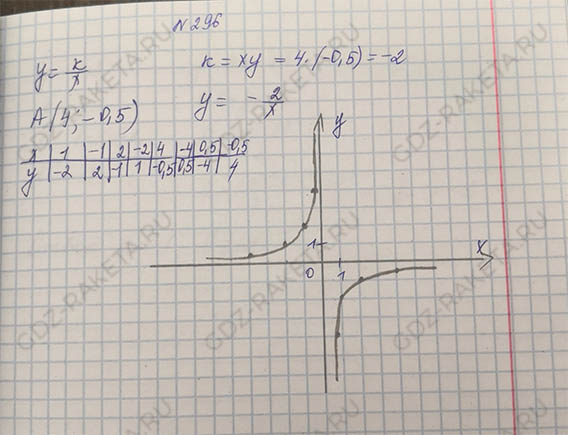 N 296
y = k/x
k = xy = 4·(-0,5) = -2
A(4; -0,5)
y = - 2/x
x | 1 | -1 | 2 | -2 | 4 | -4 | 0,5 | -0,5
y | -2 | 2 | -1 | 1 | -0,5 | 0,5 | -4 | 4
y
1
x
0 1
GDZ-RAKETA.RU